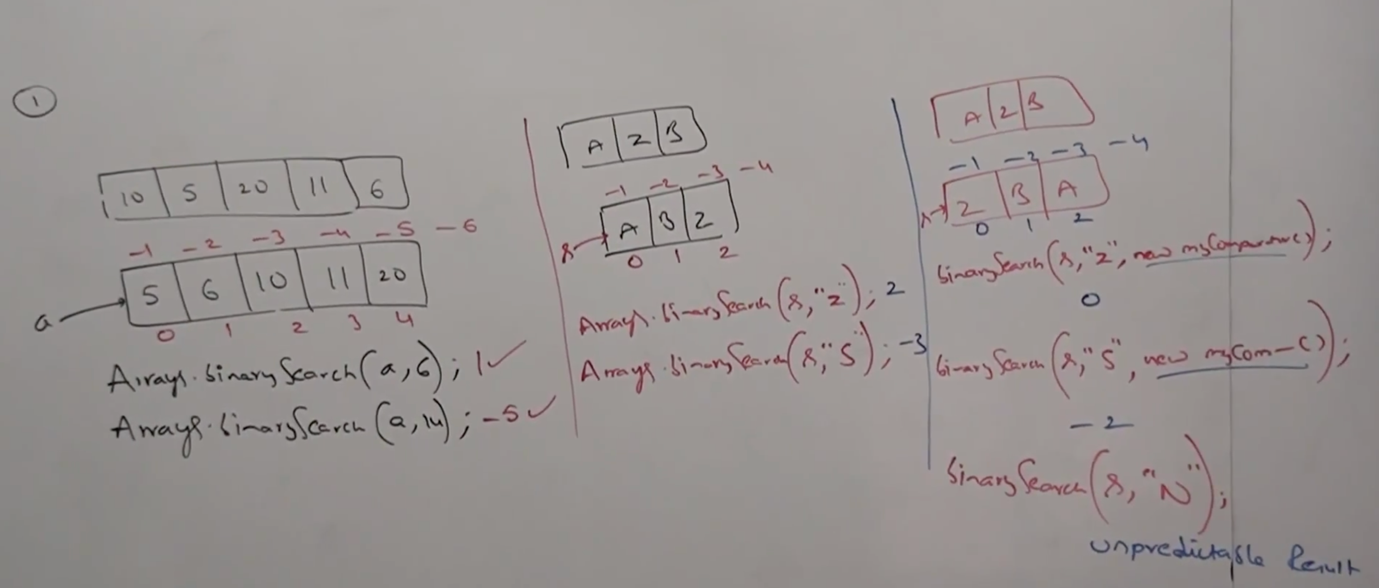 1
10 5 20 11 6
-1 -2 -3 -4 -5 -6
5 6 10 11 20
a
0 1 2 3 4
Arrays.binarySearch(a,6); 1✓
Arrays.binarySearch(a,14); -5✓
A Z B
-1 -2 -3 -4
A B Z
s
0 1 2
Arrays.binarySearch(s,"Z"); 2
Arrays.binarySearch(s,"S"); -3
A Z B
-1 -2 -3 -4
Z B A
s
0 1 2
binarySearch(s,"Z", new myComparator());
0
binarySearch(s,"S", new myCom—());
-2
binarySearch(s,"N");
unpredictable Result